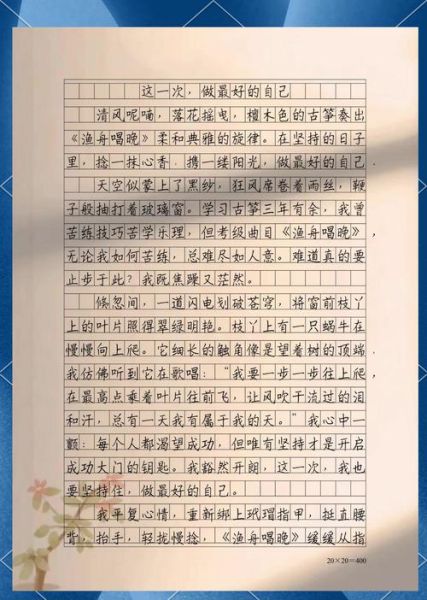 这一次，做最好的自己
清风呢喃，落花摇曳，檀木色的古筝奏出
《渔舟唱晚》柔和典雅的旋律。在坚持的日子
里，捻一抹心香，携一缕阳光，做最好的自己.
天空似蒙上了黑纱，狂风席卷着雨丝，鞭
子般抽打着玻璃窗。学习古筝三年有余，我曾
苦练技巧苦学乐理，但考级曲目《渔舟唱晚》，
无论我如何苦练，总难尽如人意。难道真的要
止步于此？我既焦躁又茫然。
倏忽间，一道闪电划破苍穹，将窗前枝丫
上的叶片照得翠绿明艳。枝丫上有一只蜗牛在
慢慢向上爬。它细长的触角像是望着树的顶端.
我仿佛听到它在歌唱：“我要一步一步往上爬，
在最高点乘着叶片往前飞，让风吹干流过的泪
和汗，总有一天我有属于我的天。”我心中一
颤：每个人都渴望成功，但唯有坚持才是开启
成功大门的钥匙。我豁然开朗，这一次，我也
要坚持住，做最好的自己。
我平复心情，重新绑上玳瑁指甲，挺直腰
背，抬手，轻拢慢捻，《渔舟唱晚》缓缓从指
20×20=400